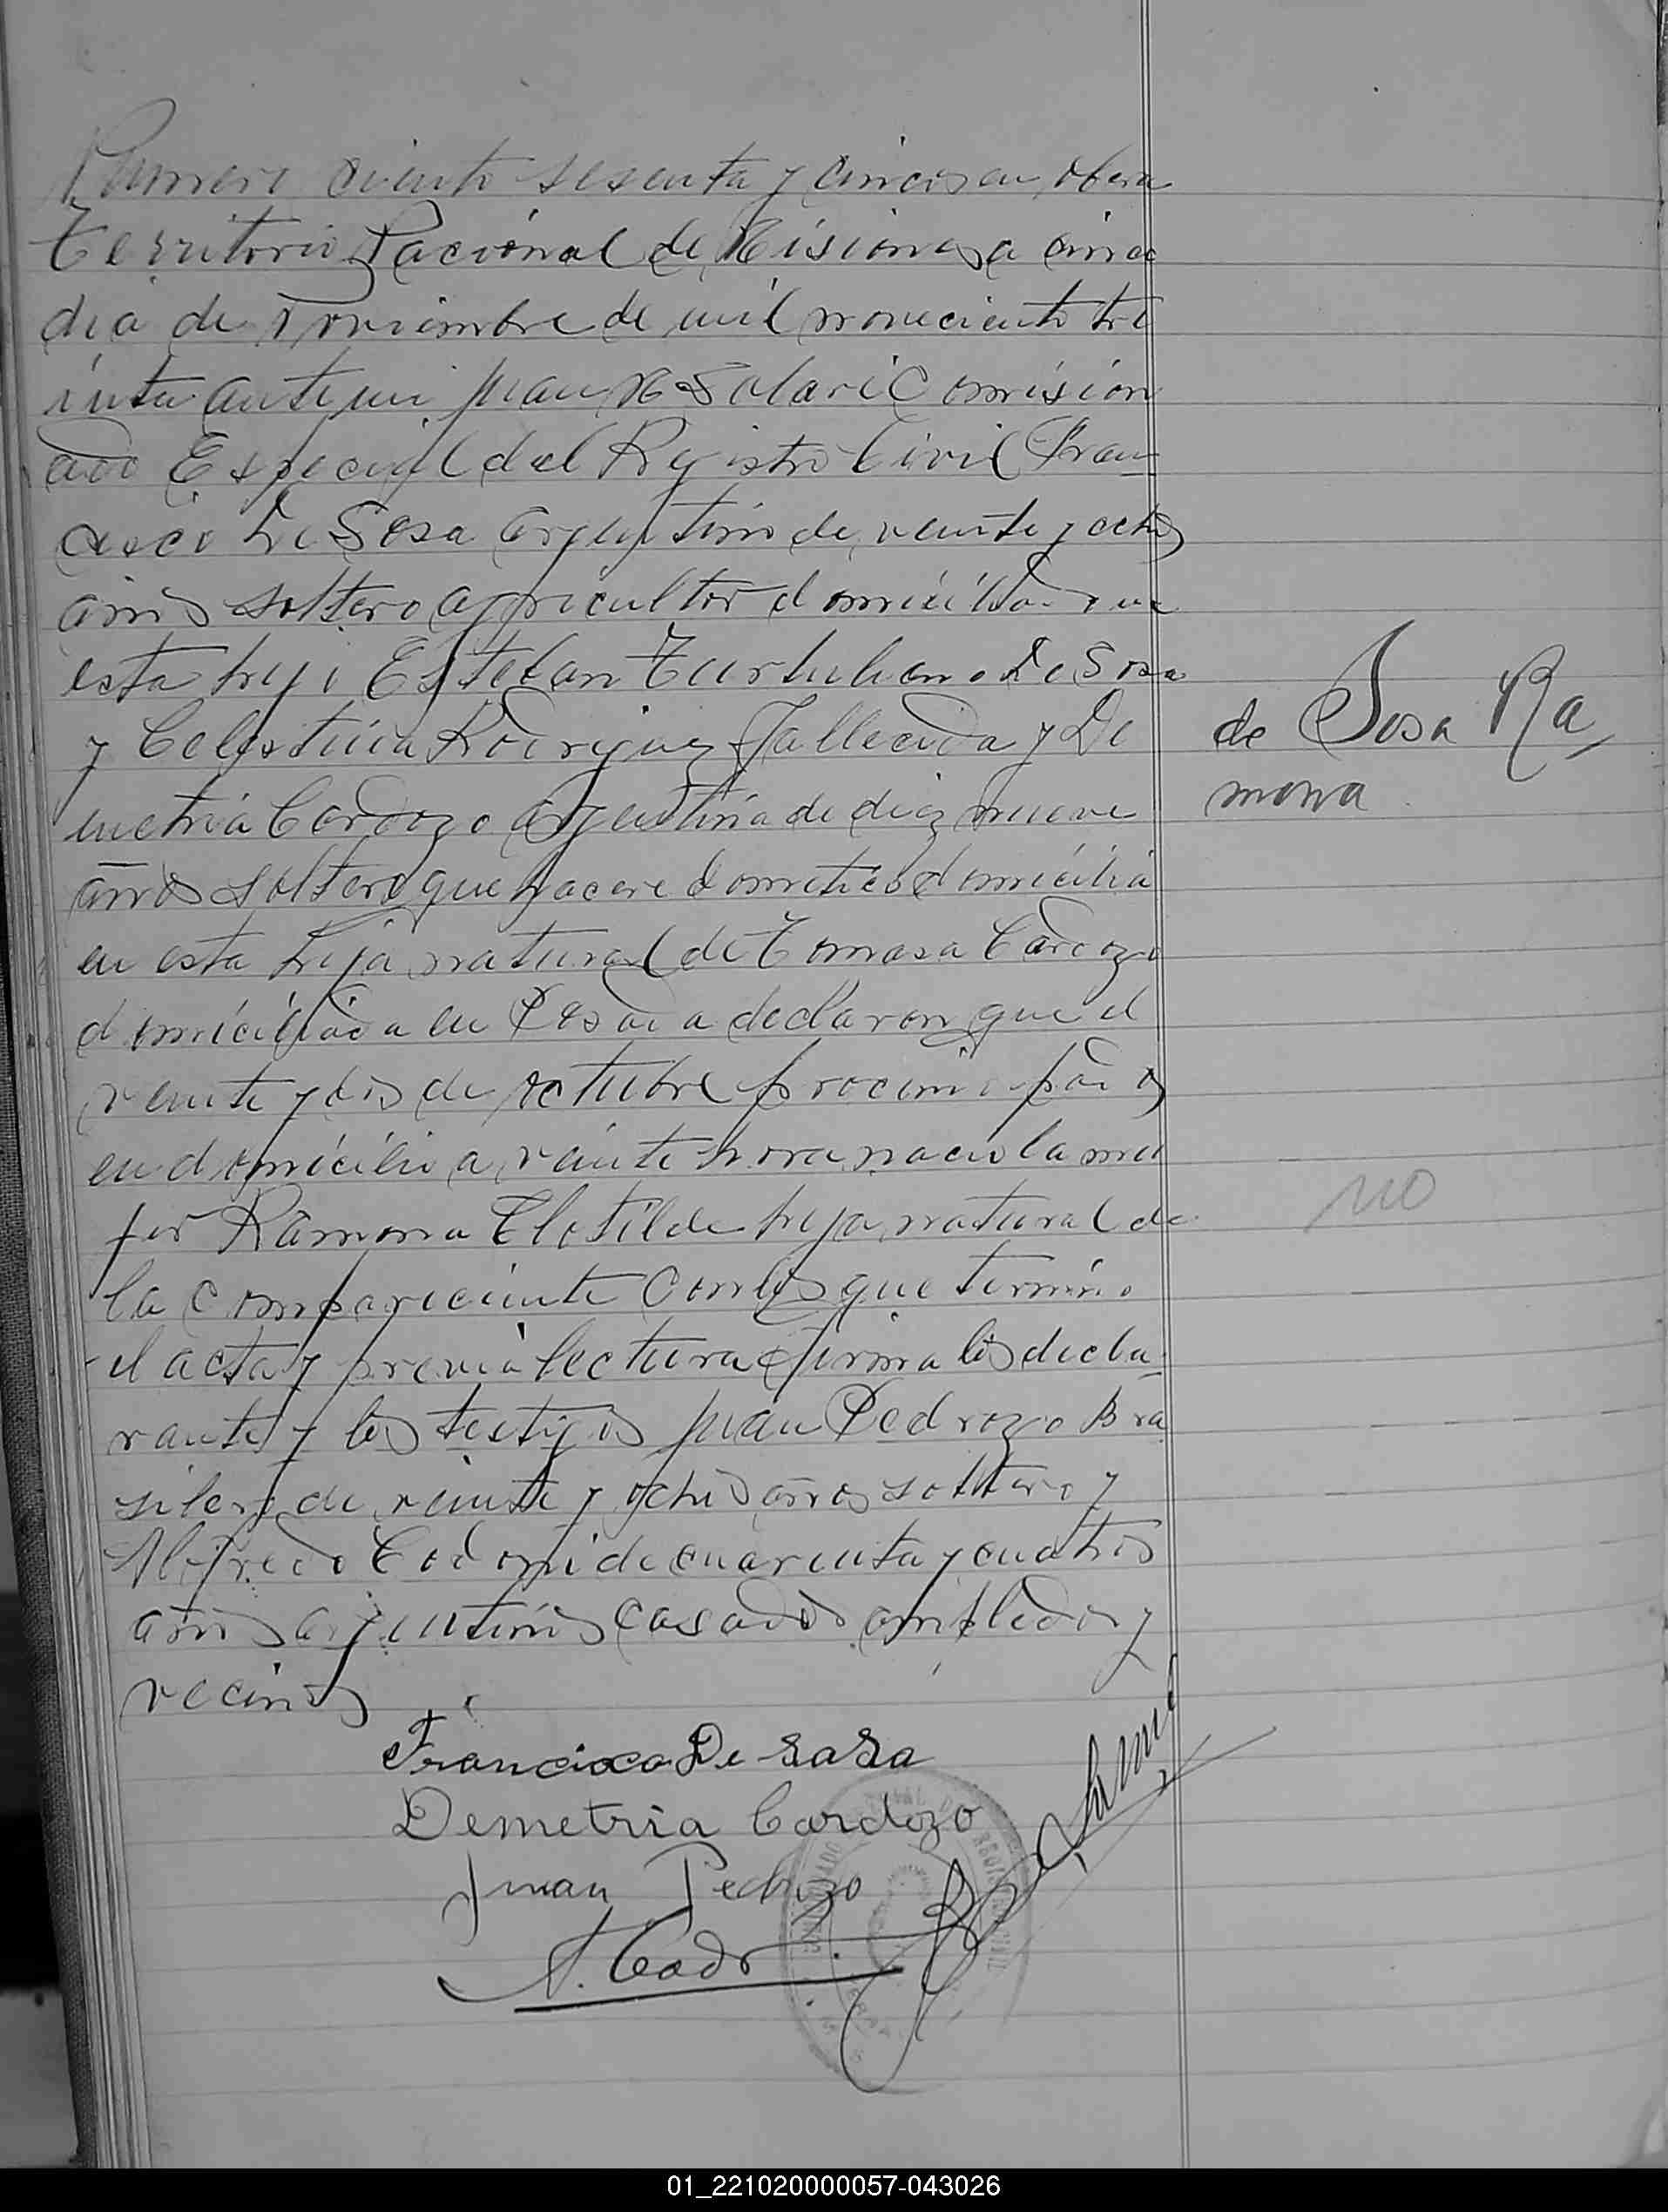 Numero ciento sesenta y cinco en Obera
Territorio Nacional de Misiones a cinco
dia de Noviembre de mil noveciento tre
inta ante mi Juan Solari Comision
ado Especial del Registro Civil Fran
cisco De Sosa argentino de veinte y ocho
años soltero agricultor domiciliado en
esta hijo Esteban Turtuliano De Sosa
y Celestina Rodriguez Fallecida y De
metria Cardozo argentina de diez nueve
años soltera que hacere dometico domicilia
en esta hija natural de Tomasa Cardozo
domiciliada en Posada declaron que el
veinte y dos de octubre procimo pado
en domicilio a veinte hora nacio la mu
jer Ramona Clotilde hija natural de
la compareciente Con los que termino
el acta y previa lectura firma los decla
rante y los testigos Juan Pedrozo Bra
silero de veinte y ocho años soltero y
Alfredo Codoni de cuarenta y cuatro
años argentino casado empledo y
vecinos
de Sosa Ra
mona
no
Francisco De Sosa
Demetria Cardozo
Juan Pedrozo
A. Cod
01_221020000057-043026